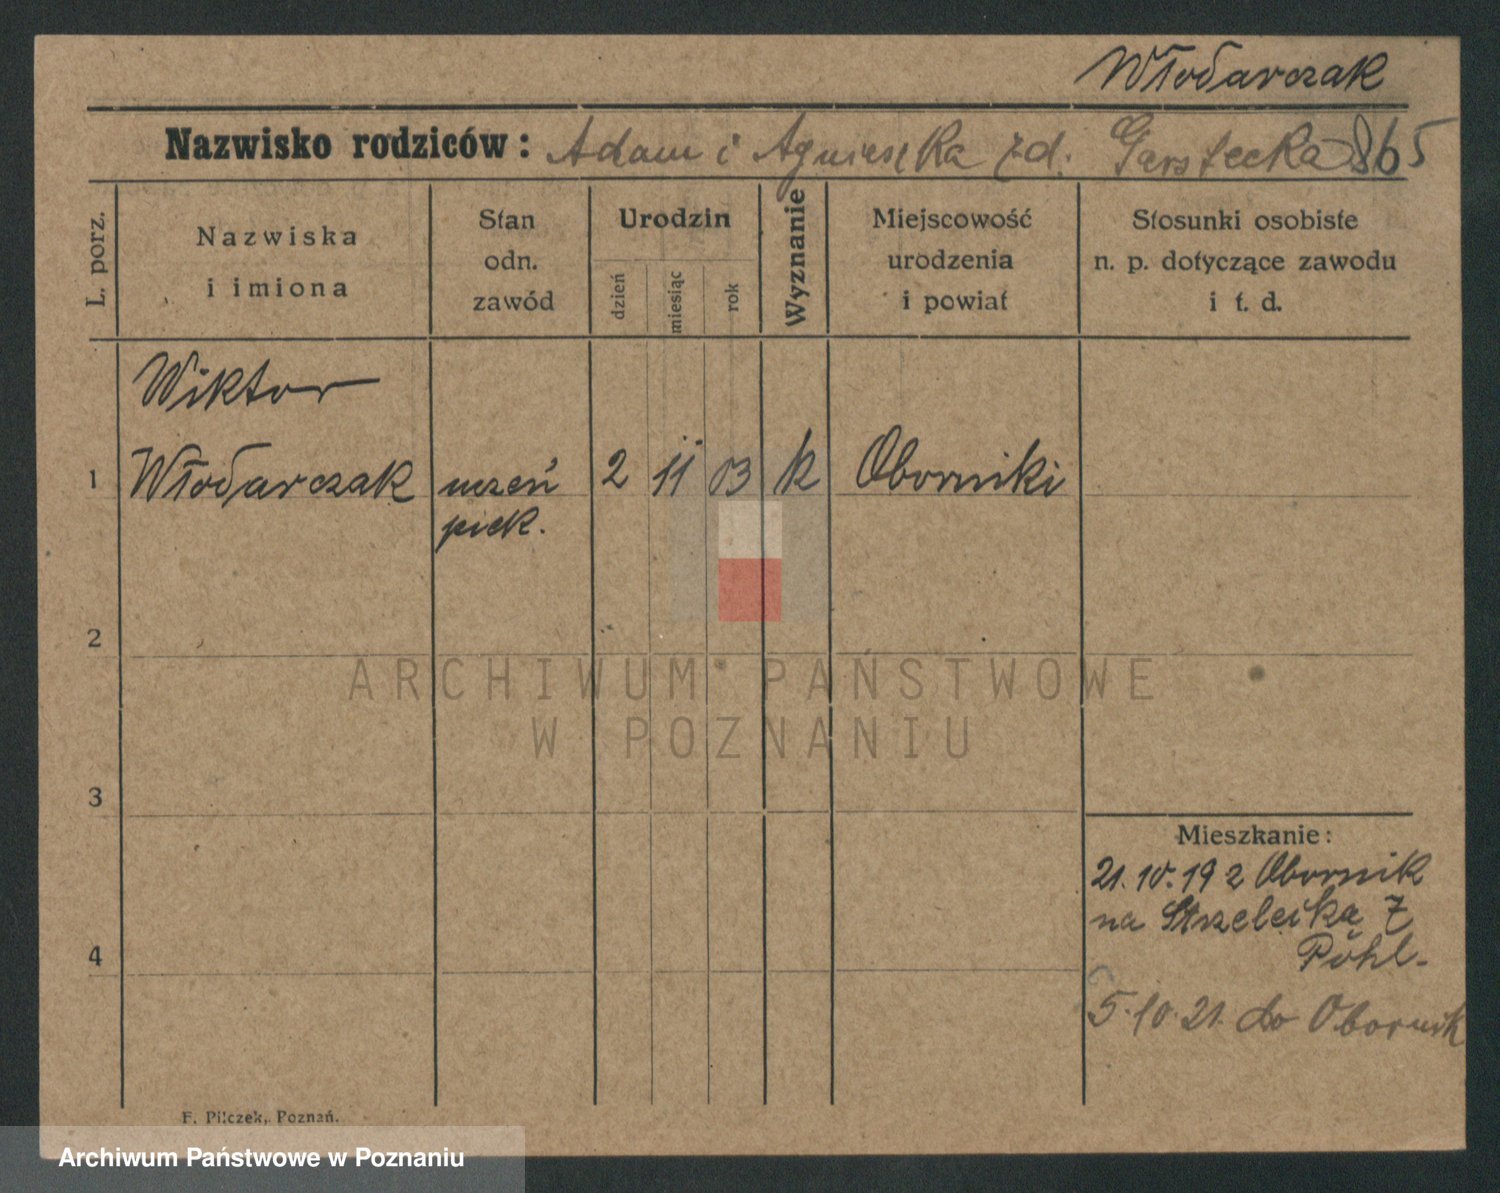 Włodarczak
Nazwisko rodziców: Adam i Agnieszka zd. Garstecka 865
L. porz.
Nazwiska
i imiona
Stan
odn.
zawód
Urodzin
dzień
miesiąc
rok
Wyznanie
Miejscowość
urodzenia
i powiat
Stosunki osobiste
n. p. dotyczące zawodu
i t. d.
Wiktor
1 Włodarczak uczeń 2 11 03 k Oborniki
piek.
2
ARCHIWUM PAŃSTWOWE
W POZNANIU
3
Mieszkanie:
21.10.19 z Obornik
na Strzelecką 7
Pohl.
4
5.10.21. do Obornik
F. Pilczek, Poznań.
Archiwum Państwowe w Poznaniu